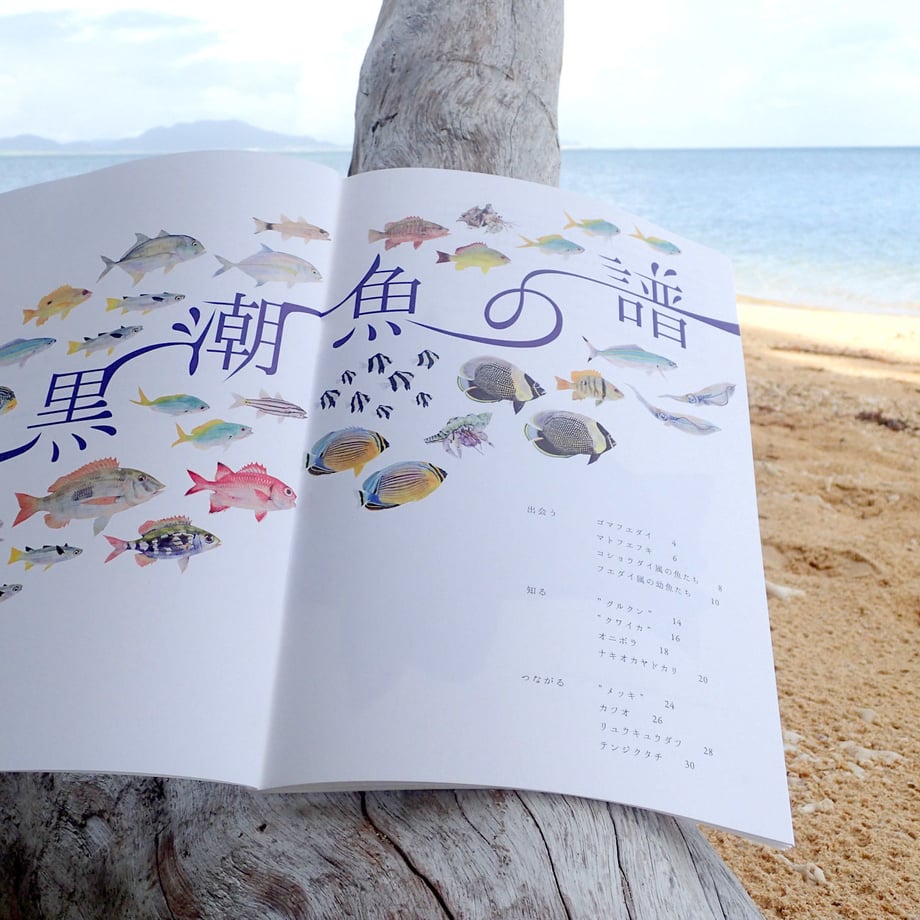 黒潮魚の譜
出会う
ゴマフエダイ 4
マトフエフキ 6
コショウダイ風の魚たち 8
フエダイ風の幼魚たち 10
知る
"グルクン" 14
"クワイカ" 16
オニボラ 18
ナキオカヤドカリ 20
つながる
"メッキ" 24
カツオ 26
リュウキュウダツ 28
テンジクタチ 30